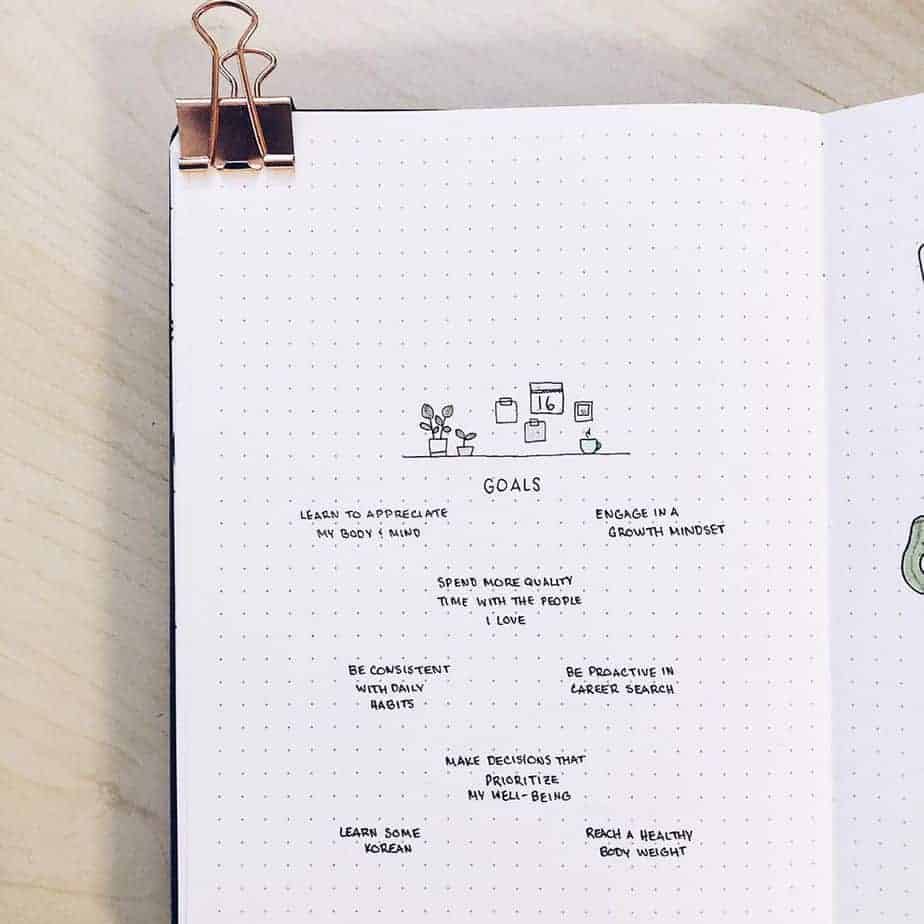 16
GOALS
LEARN TO APPRECIATE
MY BODY & MIND
ENGAGE IN A
GROWTH MINDSET
SPEND MORE QUALITY
TIME WITH THE PEOPLE
I LOVE
BE CONSISTENT
WITH DAILY
HABITS
BE PROACTIVE IN
CAREER SEARCH
MAKE DECISIONS THAT
PRIORITIZE
MY WELL-BEING
LEARN SOME
KOREAN
REACH A HEALTHY
BODY WEIGHT